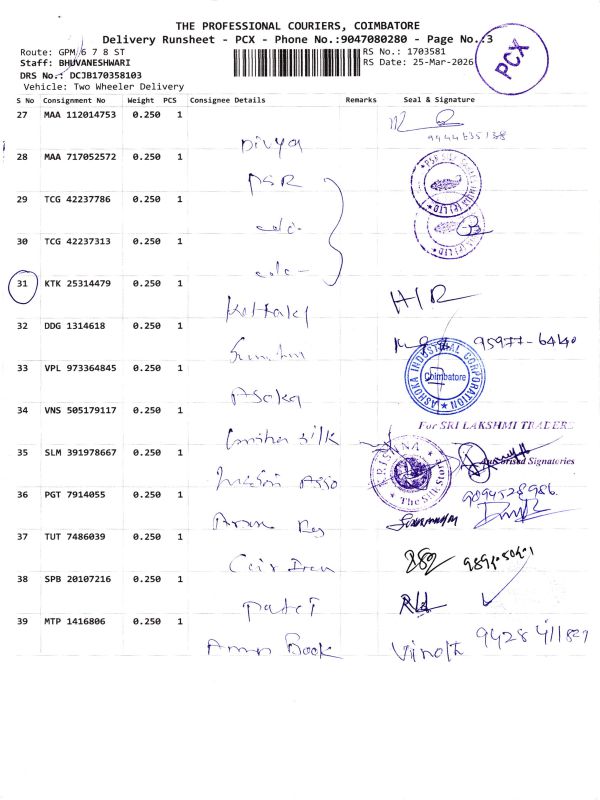 THE PROFESSIONAL COURIERS, COIMBATORE
Delivery Runsheet - PCX - Phone No.:9047080280 - Page No.:3
Route: GPM 6 7 8 ST
RS No.: 1703581
PCX
Staff: BHUVANESHWARI
RS Date: 25-Mar-2026
DRS No.: DCJB170358103
Vehicle: Two Wheeler Delivery
S No Consignment No Weight PCS Consignee Details Remarks Seal & Signature
27 MAA 112014753 0.250 1
Divya
28 MAA 717052572 0.250 1
PSR
29 TCG 42237786 0.250 1
30 TCG 42237313 0.250 1
31 KTK 25314479 0.250 1
H/R
32 DDG 1314618 0.250 1
95977-64140
33 VPL 973364845 0.250 1
Asoka
ASHOKA INDUSTRIAL CORPORATION
Coimbatore
34 VNS 505179117 0.250 1
silk
For SRI LAKSHMI TRADERS
35 SLM 391978667 0.250 1
KRISHNA
The Silk Store
Authorised Signatories
36 PGT 7914055 0.250 1
9094528986
37 TUT 7486039 0.250 1
38 SPB 20107216 0.250 1
Patel
39 MTP 1416806 0.250 1
Book
Vinoth